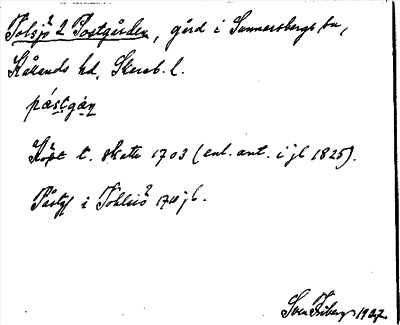 Tolsjö 2 Postgården, gård i Sunnersbergs sn,
Kållands hd, Skarab. l.
påstgån
Köpt t. skatte 1703 (enl. ant. i jb 1825).
Påstg i Tohlsiö 1741 jb.
Sven Friberg 1927.